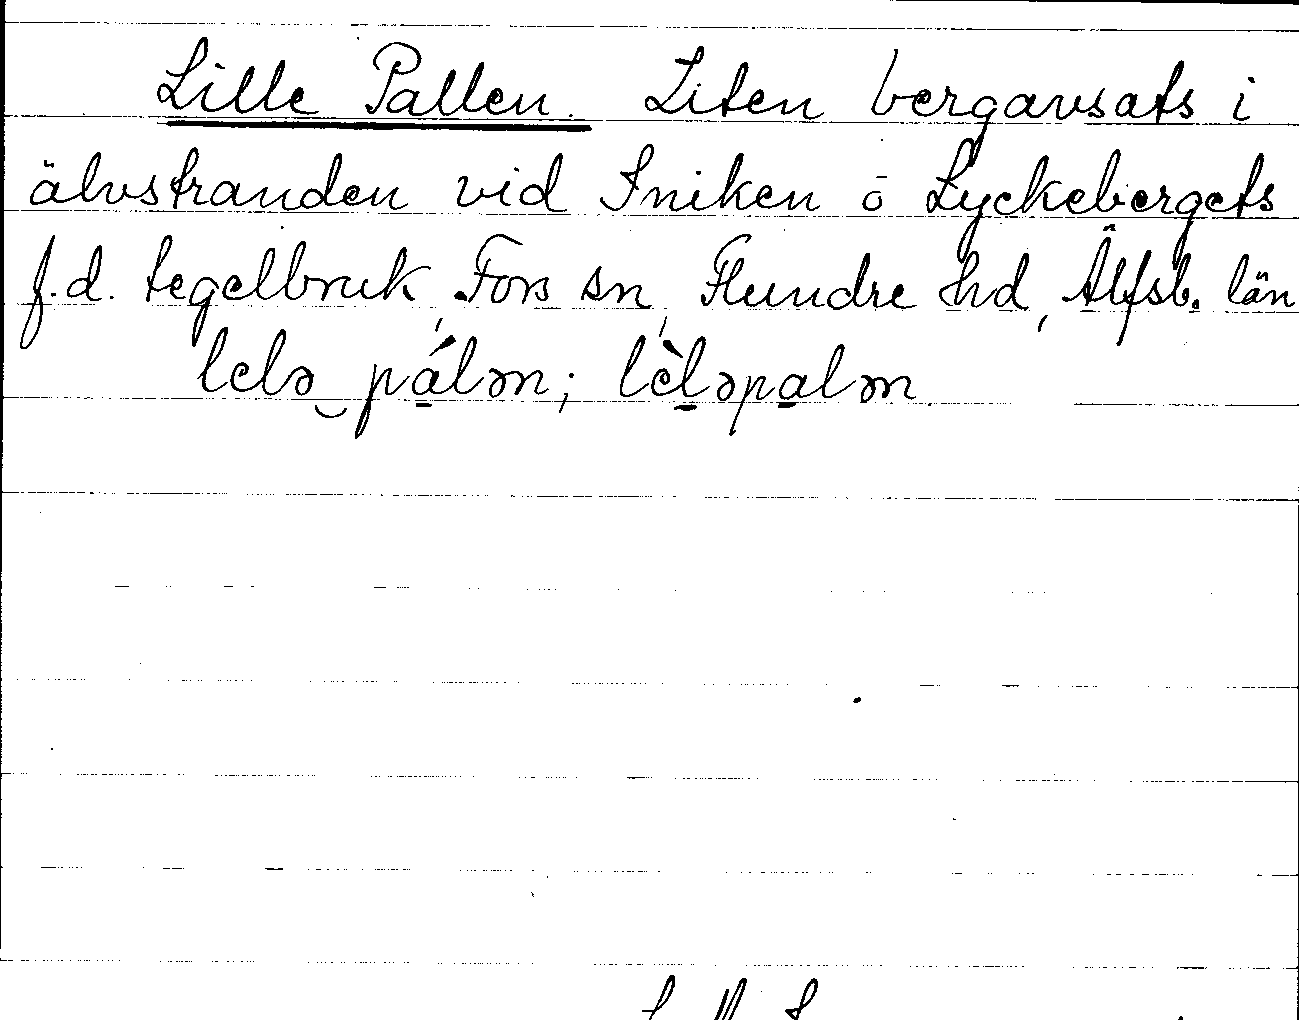 Lille Pallen. Liten bergavsats i
älvstranden vid Sniken ō Lyckebergets
f.d. tegelbruk, Fors sn, Flundre hd, Älfsb. län
lelə‿pálən; lèləpalən.